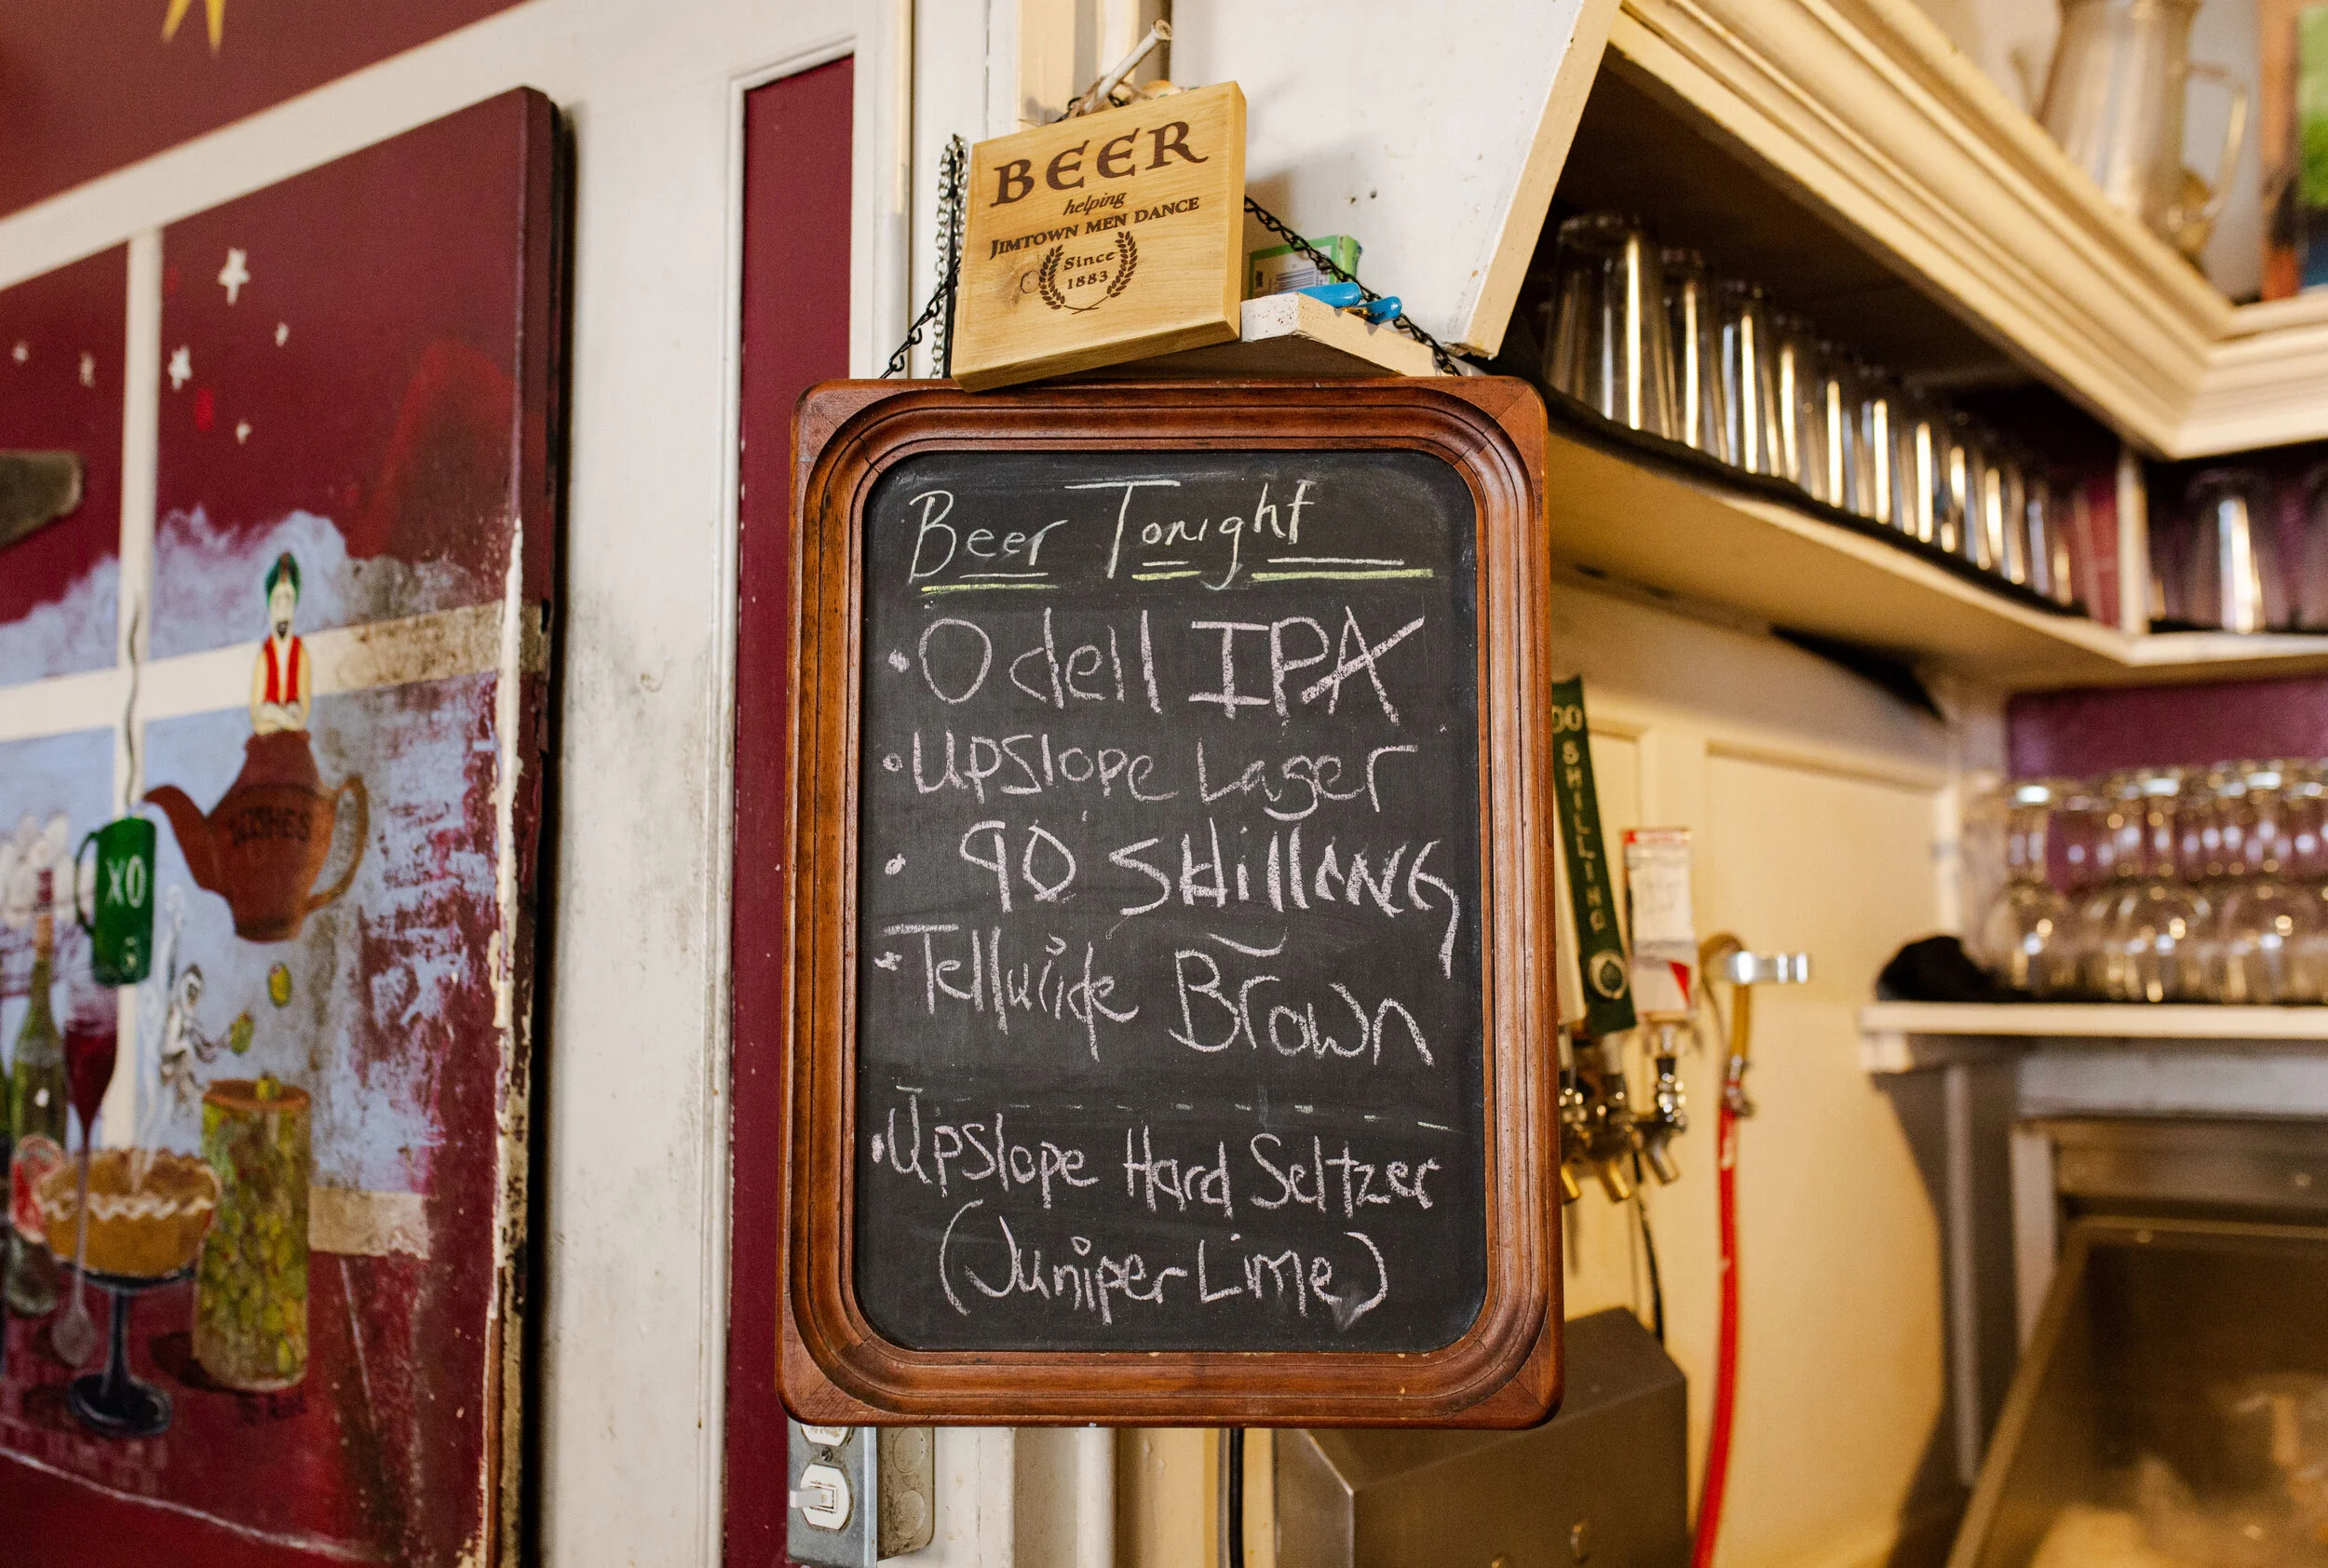 BEER
helping
JIMTOWN MEN DANCE
Since
1883
Beer Tonight
• Odell IPA
• Upslope Lager
• 90 SHillING
• Telluride Brown
• Upslope Hard Seltzer
(Juniper Lime)
WISHES
XO
90 SHILLING